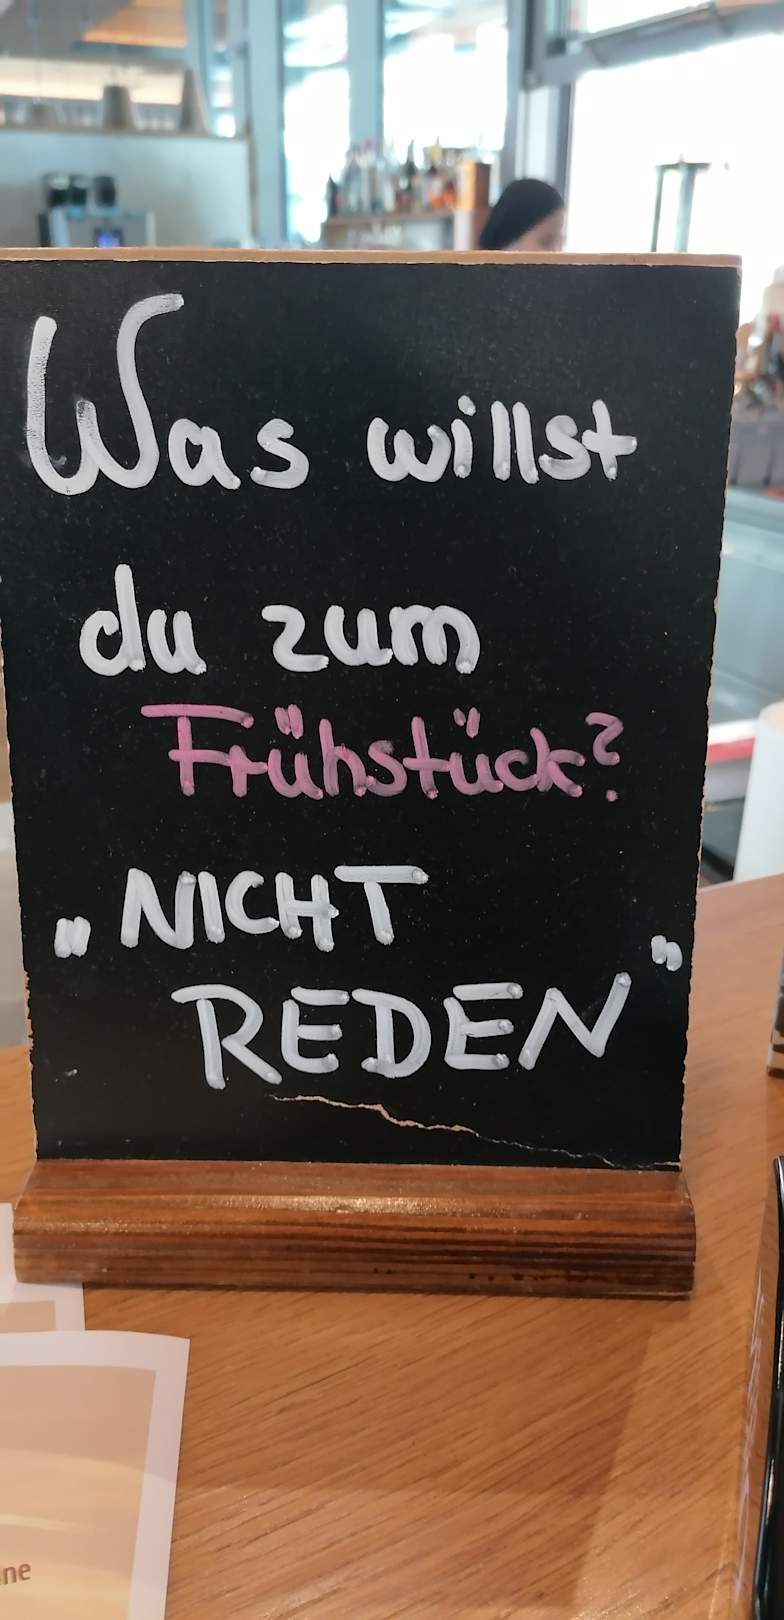 Was willst
du zum
Frühstück?
„NICHT
REDEN"